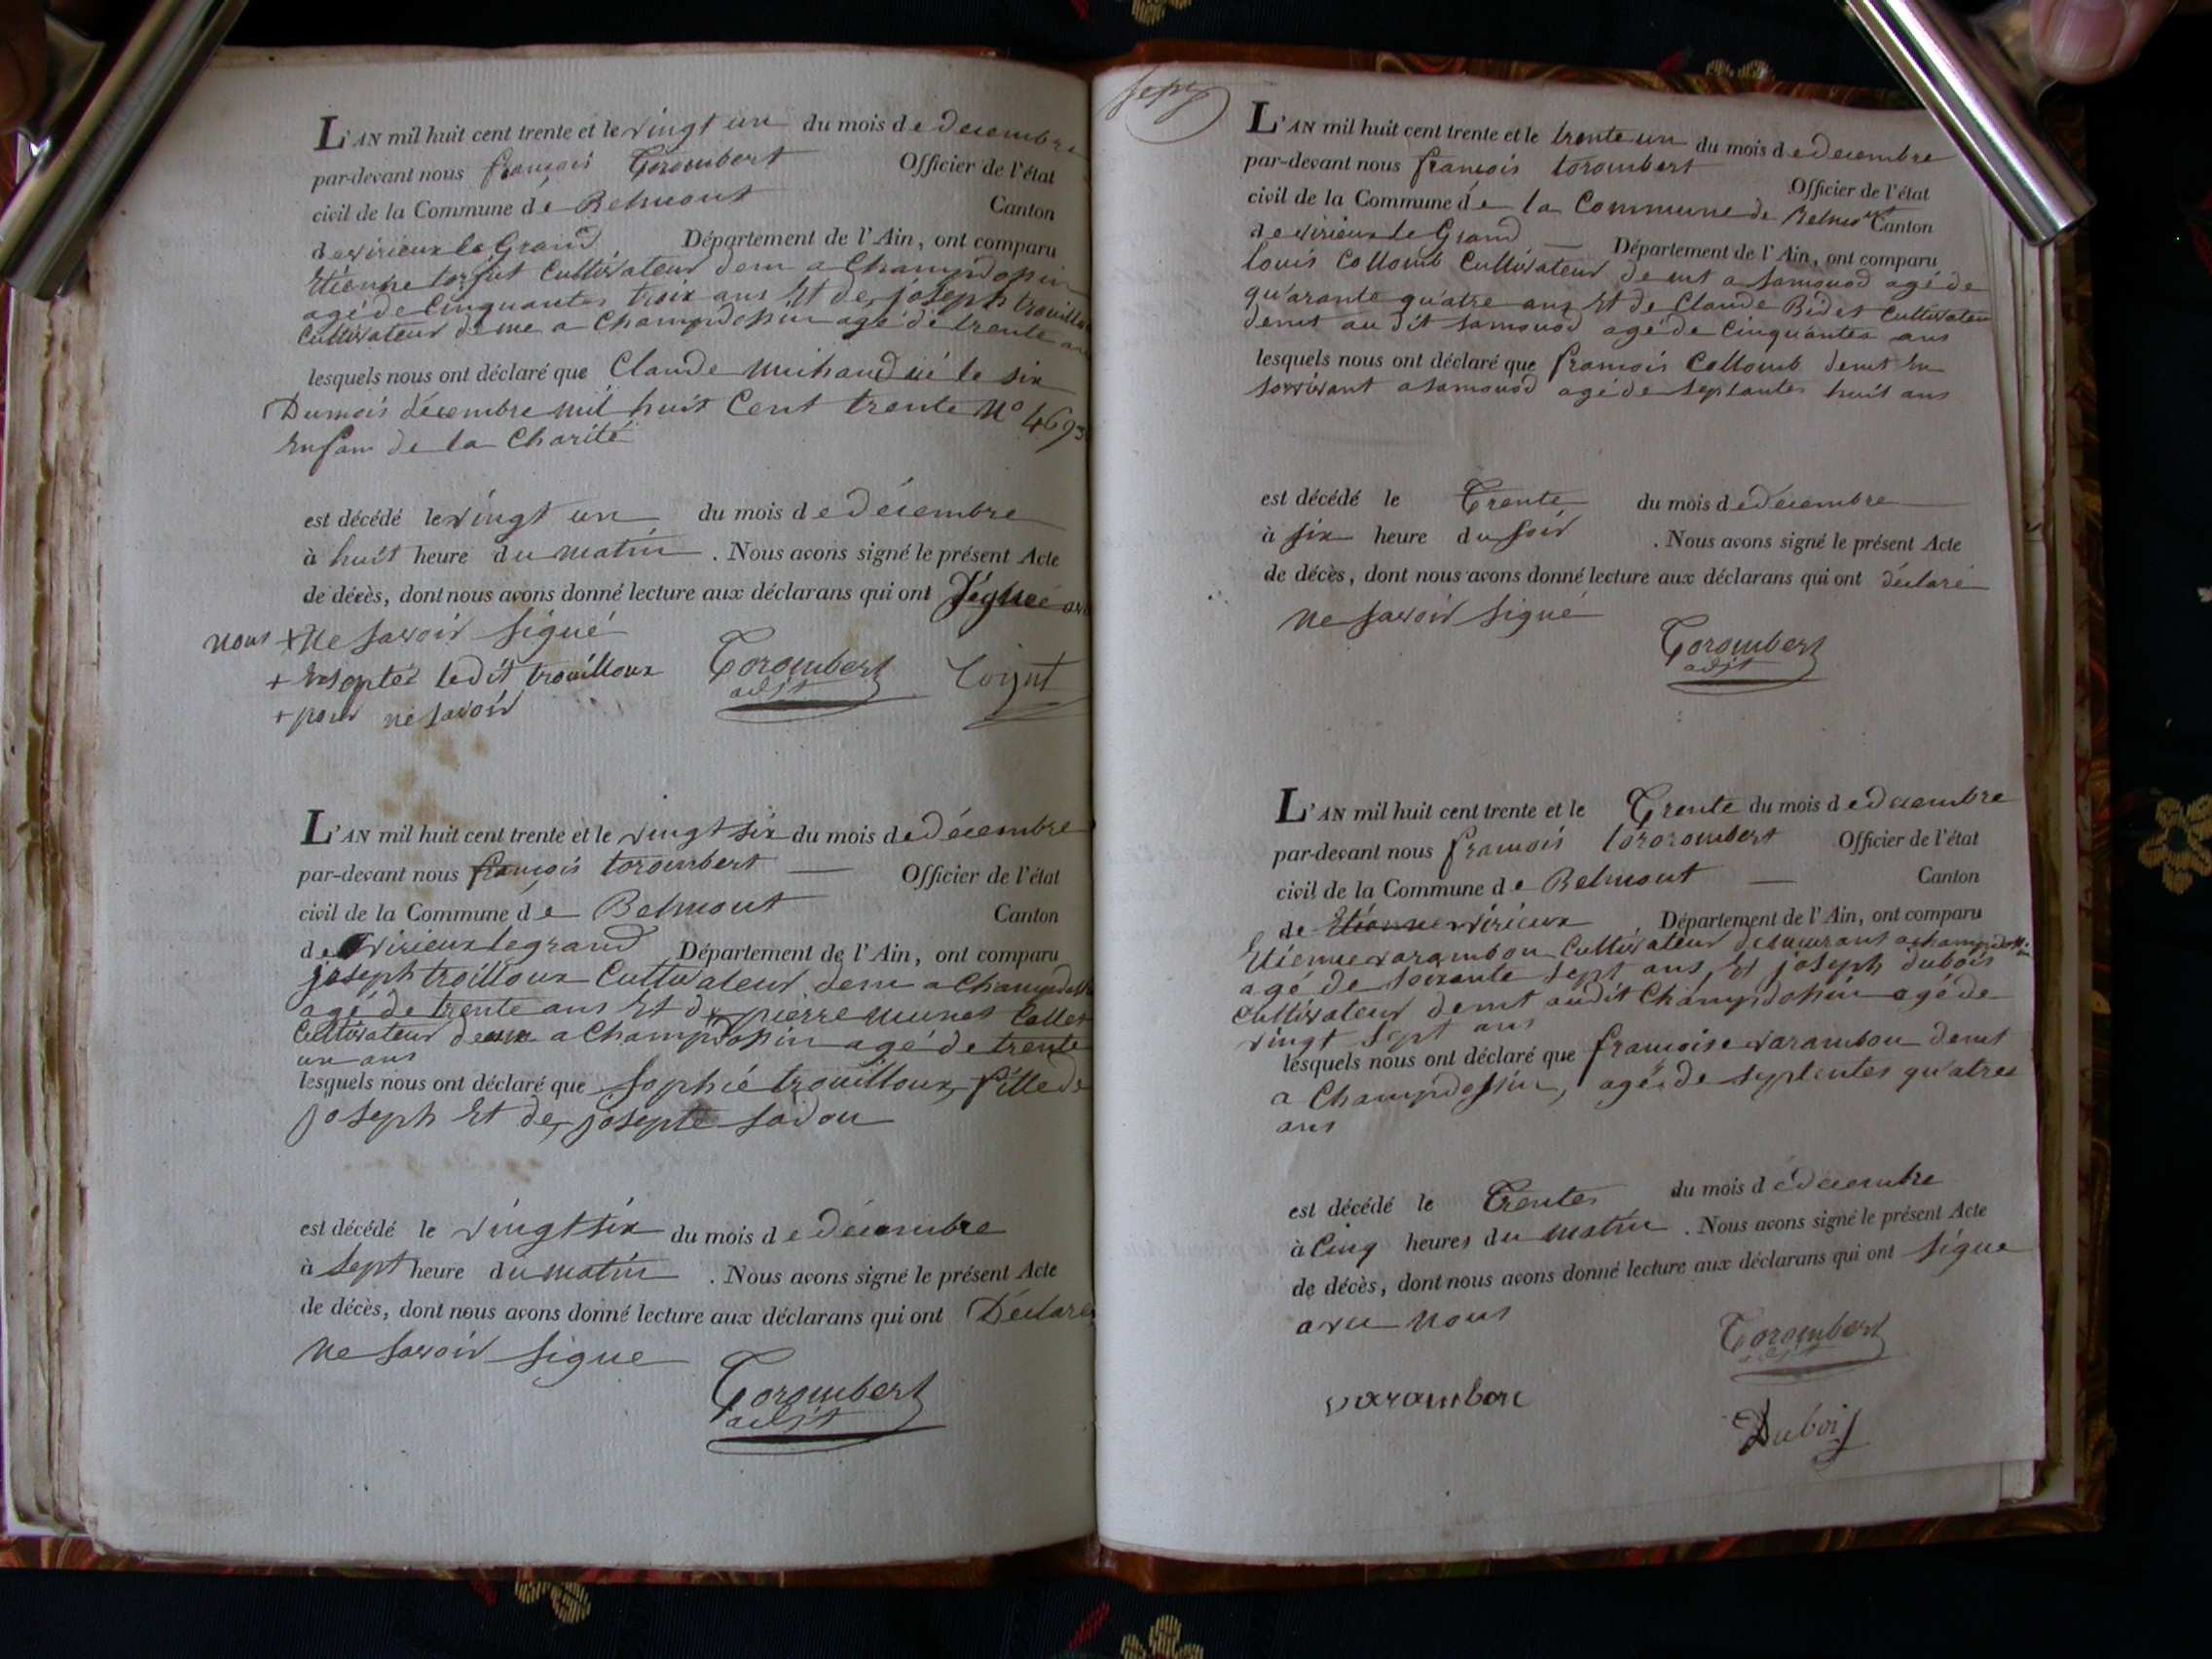 L'AN mil huit cent trente et le vingt un du mois de decembre
par-devant nous françois Torombert Officier de l'état
civil de la Commune de Belmont Canton
de virieux le Grand Département de l'Ain, ont comparu
Etienne cultivateur dem a Champdossin
agé de Cinquantes troix ans Et de joseph trouilloux
Cultivateur deme a Champdossin agé de trente ans
lesquels nous ont déclaré que Claude Michaud né le six
Dumois décembre mil huit Cent trente No 4693
Enfan de la Charité
est décédé le vingt un du mois de décembre
à huit heure du matin . Nous avons signé le présent Acte
de décès, dont nous avons donné lecture aux déclarans qui ont
nous + Ne savoir signé
+ Exsepteé ledit trouilloux Torombert
adjt
+ pour ne savoir
L'AN mil huit cent trente et le vingt six du mois de décembre
par-devant nous françois torombert — Officier de l'état
civil de la Commune de Belmont Canton
de virieux legrand Département de l'Ain, ont comparu
joseph troilloux Cultivateur dem a Champdossin
agé de trente ans Et de pierre Collet
Cultivateur dem a Champdossin agé de trente
un ans
lesquels nous ont déclaré que Sophié trouilloux, fille de
joseph Et de josepte
est décédé le vingt six du mois de décembre
à Sept heure du matin . Nous avons signé le présent Acte
de décès, dont nous avons donné lecture aux déclarans qui ont Déclare
Ne savoir signe
Torombert
adjt
L'AN mil huit cent trente et le trente un du mois de decembre
par-devant nous françois torombert Officier de l'état
civil de la Commune de la Commune de Belmont Canton
de virieux le Grand — Département de l'Ain, ont comparu
louis Collomb Cultivateur demt a Samonod agé de
qu'arante qu'atre ans Et de Claude Bidet Cultivateur
demt au dit Samonod agé de Cinquantes ans
lesquels nous ont déclaré que françois Collomb demt En
Sorvivant a Samonod agé de Septantes huit ans
est décédé le Trente du mois de decembre
à six heure du soir . Nous avons signé le présent Acte
de décès, dont nous avons donné lecture aux déclarans qui ont déclaré
Ne savoir signé
Torombert
adjt
L'AN mil huit cent trente et le Trente du mois de decembre
par-devant nous françois tororombert Officier de l'état
civil de la Commune de Belmont — Canton
de Etienne virieux Département de l'Ain, ont comparu
Etienne varambon Cultivateur demeurant a champdossin
agé de soixante sept ans, Et joseph dubois
Cultivateur demt audit Champdossin agé de
vingt sept ans
lesquels nous ont déclaré que françoise varambon demt
a Champdossin, agée de septentes qu'atres
ans
est décédé le Trentes du mois de decembre
à Cinq heures du matin . Nous avons signé le présent Acte
de décès, dont nous avons donné lecture aux déclarans qui ont signe
avec nous
Torombert
adjt
varambon
Dubois